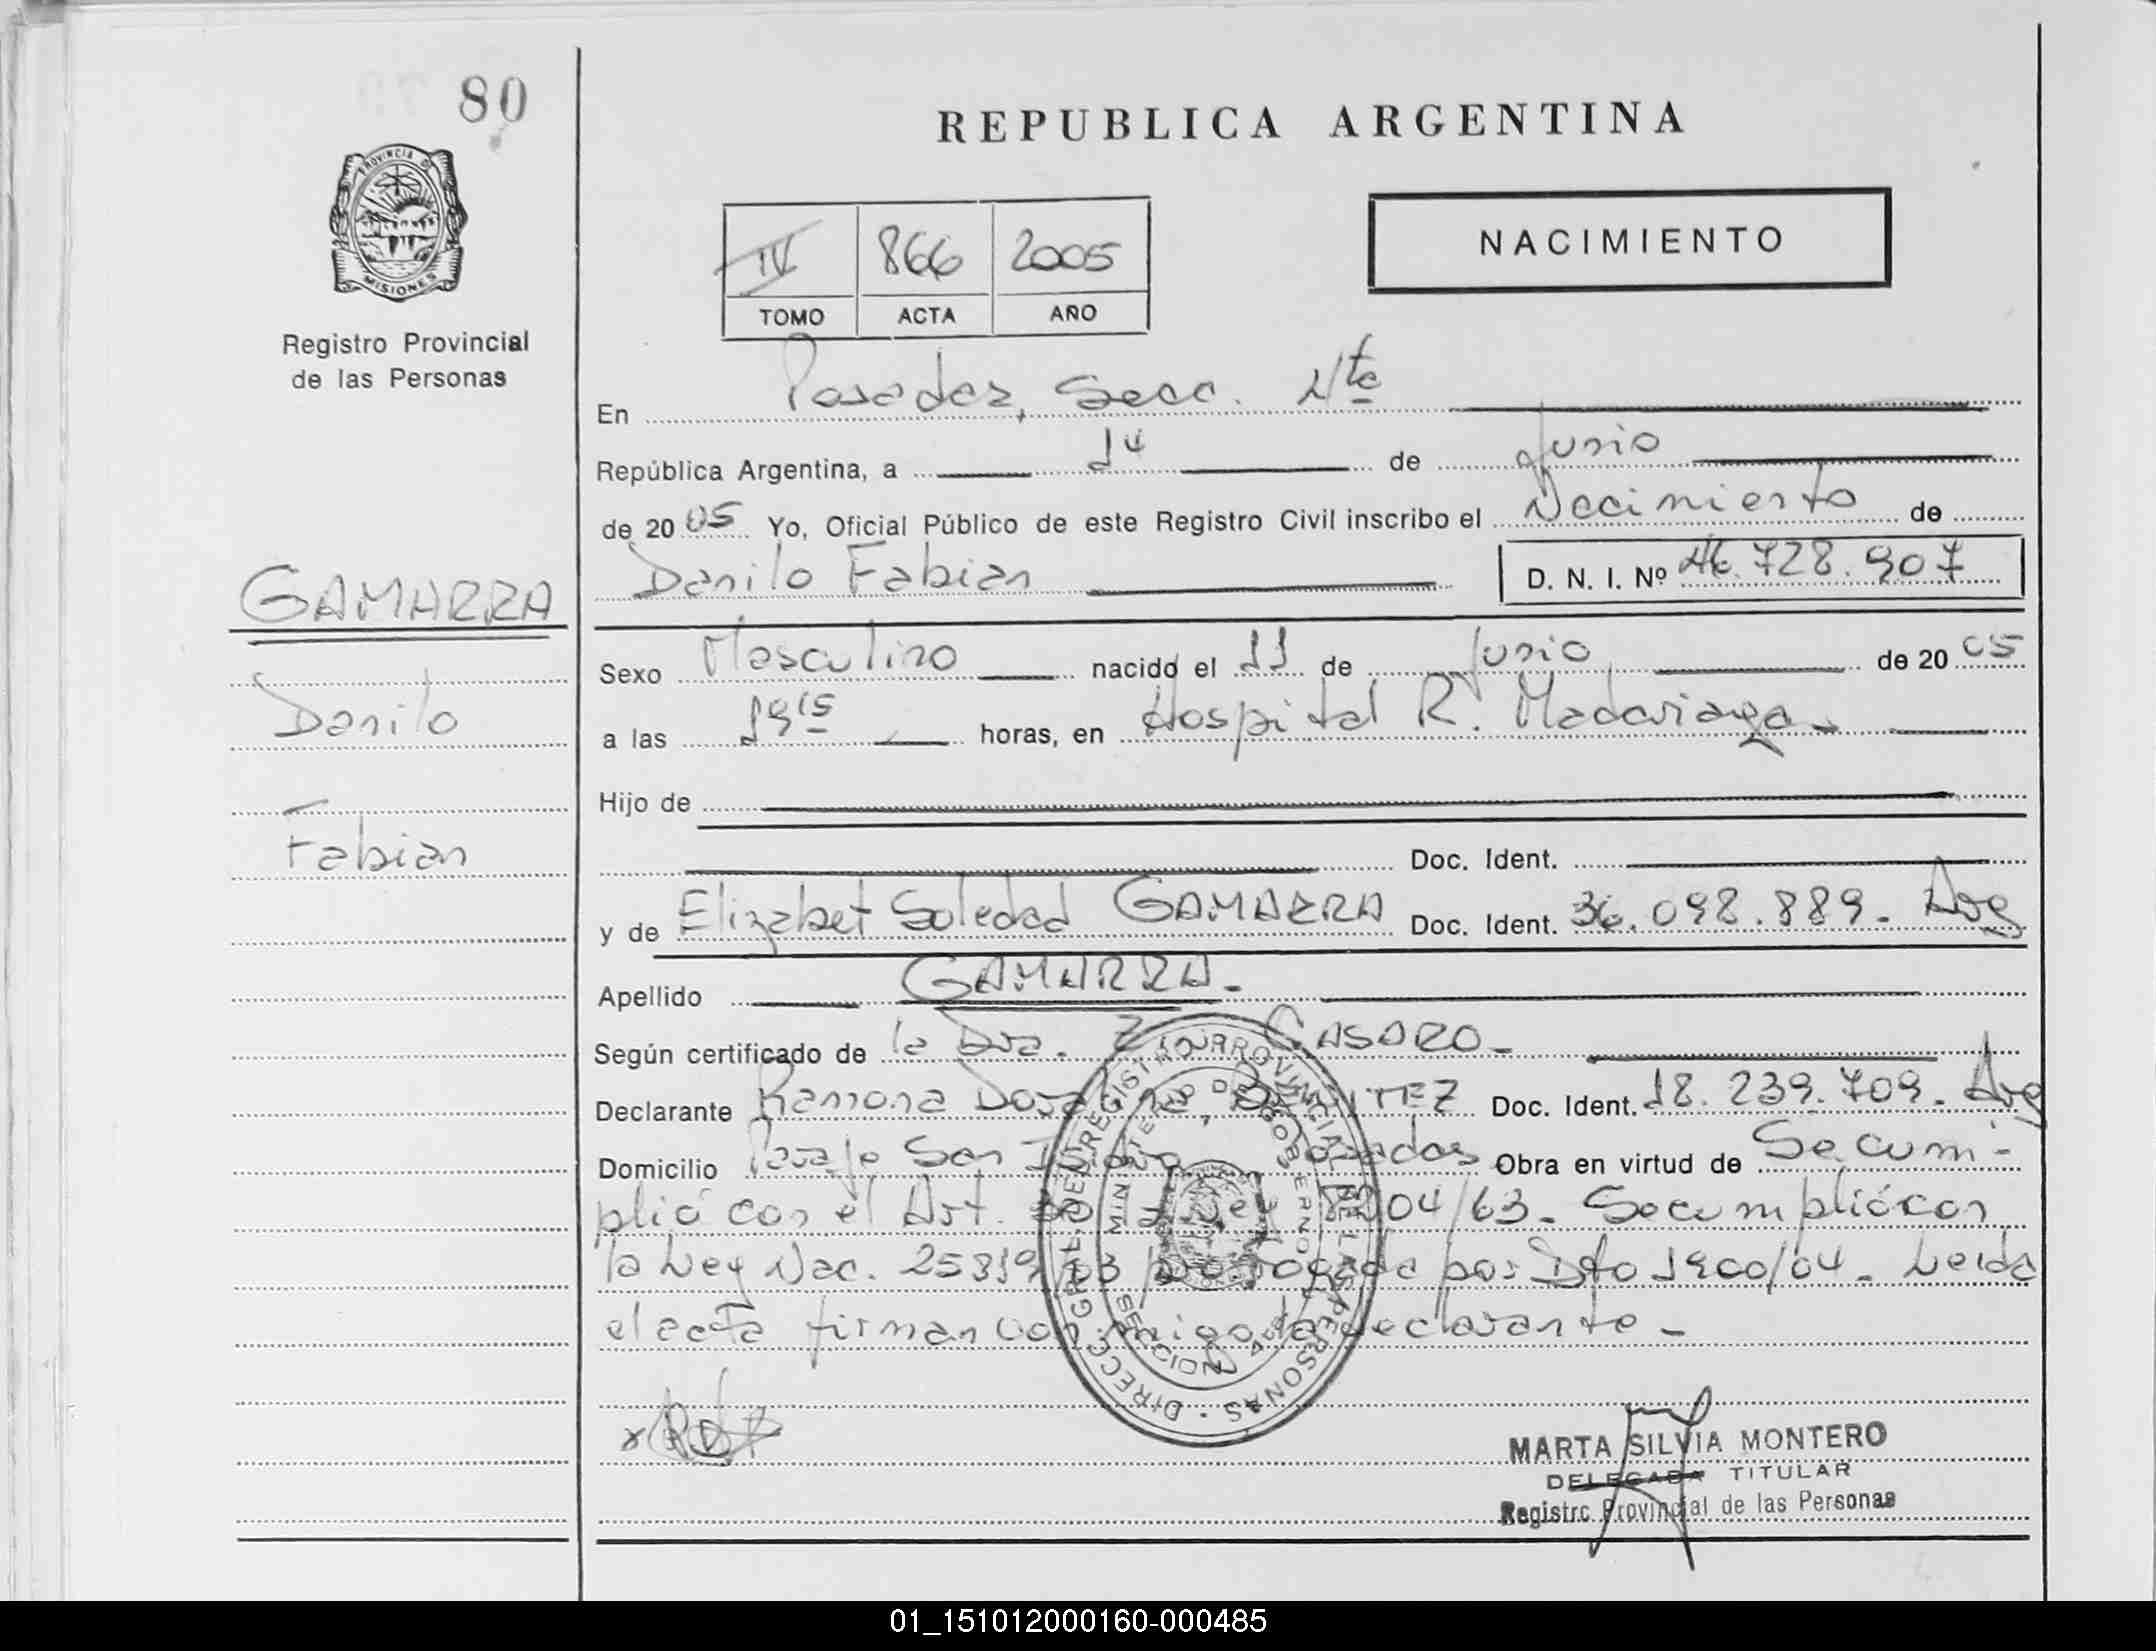 80
REPUBLICA ARGENTINA
PROVINCIA DE
MISIONES
Registro Provincial
de las Personas
IV 866 2005
TOMO ACTA AÑO
NACIMIENTO
En Posadas, Secc. Nte
República Argentina, a 14 de Junio
de 2005 Yo, Oficial Público de este Registro Civil inscribo el Nacimiento de
Danilo Fabian D. N. I. Nº 46.728.907
GAMARRA
Danilo
Fabian
Sexo Masculino nacido el 11 de Junio de 2005
a las 19 15 horas, en Hospital R. Madariaga
Hijo de
Doc. Ident.
y de Elizabet Soledad GAMARRA Doc. Ident. 36.098.889. Arg
Apellido GAMARRA.
Según certificado de la Dra. Z. CASARO
Declarante Ramona BENITEZ Doc. Ident. 18.239.709. Arg
Domicilio Pasaje San Isidro Posadas Obra en virtud de Se cum-
plió con el Art. Ley 04/63. Se cumplió con
la Ley Nac. 25819/03 Prorrogada por Dto 1900/04. Leida
el acta firman conmigo la declarante -
MARTA SILVIA MONTERO
DELEGADA TITULAR
Registro Provincial de las Personas
DIRECC. GRAL. DEL REGISTRO PROVINCIAL DE LAS PERSONAS
MINISTERIO DE GOBIERNO
01_151012000160-000485